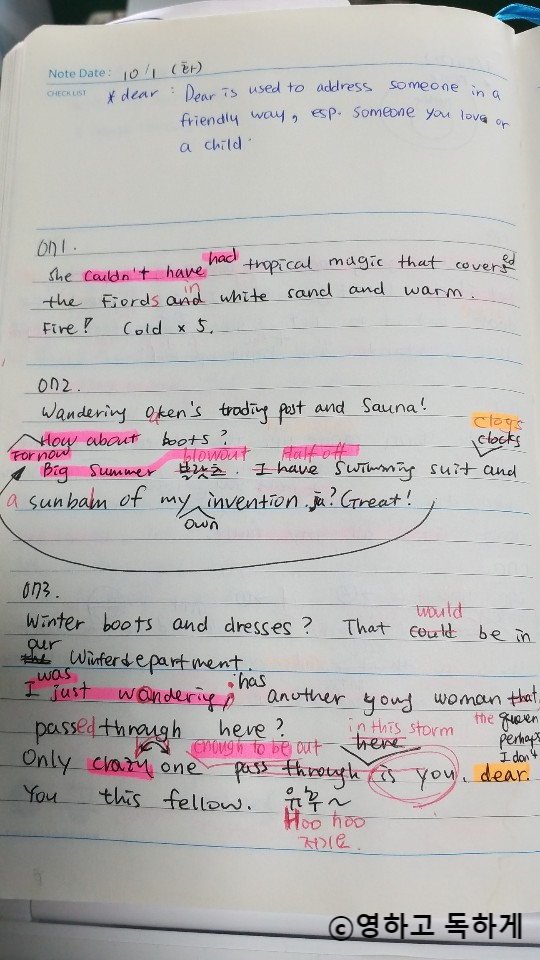 Note Date : 10/1 (화)
CHECK LIST
* dear : Dear is used to address someone in a
friendly way, esp. someone you love or
a child.
077 1.
had ed
She couldn't have tropical magic that covers
in
the Fiords and white sand and warm.
Fire? Cold x 5.
077 2.
Wandering Oaken's trading post and Sauna!
clogs
How about boots? clocks
For now blowout Half off
Big Summer I have swimming suit and
a sunbalm of my invention. ja? Great!
own
077 3.
would
Winter boots and dresses? That could be in
our
Winter department.
was has
I just wondering, another young woman that
passed through here? in this storm the queen
here perhaps
enough to be out I don't
Only crazy one pass through is you, dear.
You this fellow. 유후~
Hoo hoo
저기요.
©영하고 독하게